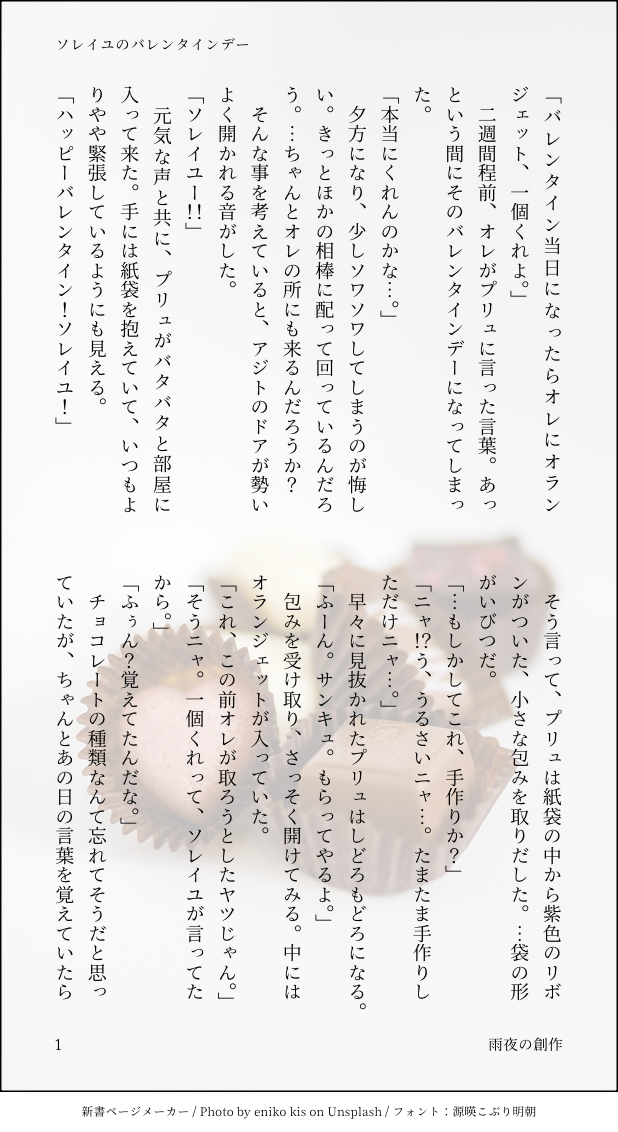 ソレイユのバレンタインデー
「バレンタイン当日になったらオレにオラン
ジェット、一個くれよ。」
二週間程前、オレがプリュに言った言葉。あっ
という間にそのバレンタインデーになってしまっ
た。
「本当にくれんのかな…。」
夕方になり、少しソワソワしてしまうのが悔し
い。きっとほかの相棒に配って回っているんだろ
う。…ちゃんとオレの所にも来るんだろうか？
そんな事を考えていると、アジトのドアが勢い
よく開かれる音がした。
「ソレイユー！！」
元気な声と共に、プリュがバタバタと部屋に
入って来た。手には紙袋を抱えていて、いつもよ
りやや緊張しているようにも見える。
「ハッピーバレンタイン！ソレイユ！」
そう言って、プリュは紙袋の中から紫色のリボ
ンがついた、小さな包みを取りだした。…袋の形
がいびつだ。
「…もしかしてこれ、手作りか？」
「ニャ！？う、うるさいニャ…。たまたま手作りし
ただけニャ…。」
早々に見抜かれたプリュはしどろもどろになる。
「ふーん。サンキュ。もらってやるよ。」
包みを受け取り、さっそく開けてみる。中には
オランジェットが入っていた。
「これ、この前オレが取ろうとしたヤツじゃん。」
「そうニャ。一個くれって、ソレイユが言ってた
から。」
「ふぅん？覚えてたんだな。」
チョコレートの種類なんて忘れてそうだと思っ
ていたが、ちゃんとあの日の言葉を覚えていたら
1
雨夜の創作
新書ページメーカー / Photo by eniko kis on Unsplash / フォント：源暎こぶり明朝